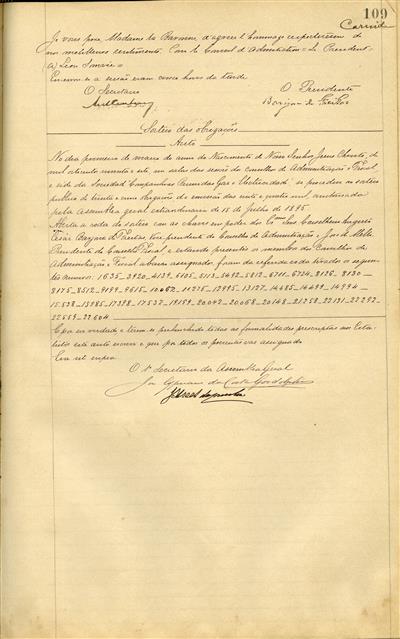 109
Je vous prie, Madame la Baronne, d'agréer l'hommage respectueux de
nos meilleurs sentiments. Pour le Conseil d'Administration = Le President
(a) Léon Somzée =
Encerrou-se a sessão eram cinco horas da tarde
O Secretario O Presidente
Sorteio das obrigações
Auto
No dia primeiro de março do anno do Nascimento de Nosso Senhor Jesus Christo, de
mil oitocentos noventa e seis, na salla das sessões do Conselho de Administração e Fiscal
e séde da Sociedade Companhias Reunidas Gaz e Electricidade, se procedeu ao sorteio
publico de trinta e uma obrigações da emissão das vinte e quatro mil, auctorisada
pela Assemblea geral extraordinaria de 15 de julho de 1895.
Aberta a roda do sorteio com as chaves em poder dos Ex.mos Snrs. Conselheiro Augusto
Cesar Barjona de Freitas, vice presidente do Conselho de Administração, e José de Mello
Presidente do Conselho Fiscal, e estando presentes os membros do Conselho de
Administração e Fiscal abaixo assignados, foram da referida roda tirados os seguin-
tes numeros: 1635 _ 3920 _ 4139 _ 5105 _ 5113 _ 5492 _ 5812 _ 6711 _ 6724 _ 8126 _ 8130 _
8175 _ 8512 _ 9199 _ 9615 _ 10062 _ 11215 _ 12995 _ 13127 _ 14485 _ 14499 _ 14994 _
15528 _ 15985 _ 17398 _ 17537 _ 19159 _ 20042 _ 20068 _ 20148 _ 21258 _ 22131 _ 22292 _
22559 _ 22604
E por ser verdade e terem-se prehenchido todas as formalidades prescriptas nos Esta-
tutos este auto escrevi e que por todos os presentes vae assignado
Era ut supra
O 1º Secretario da Assemblea Geral